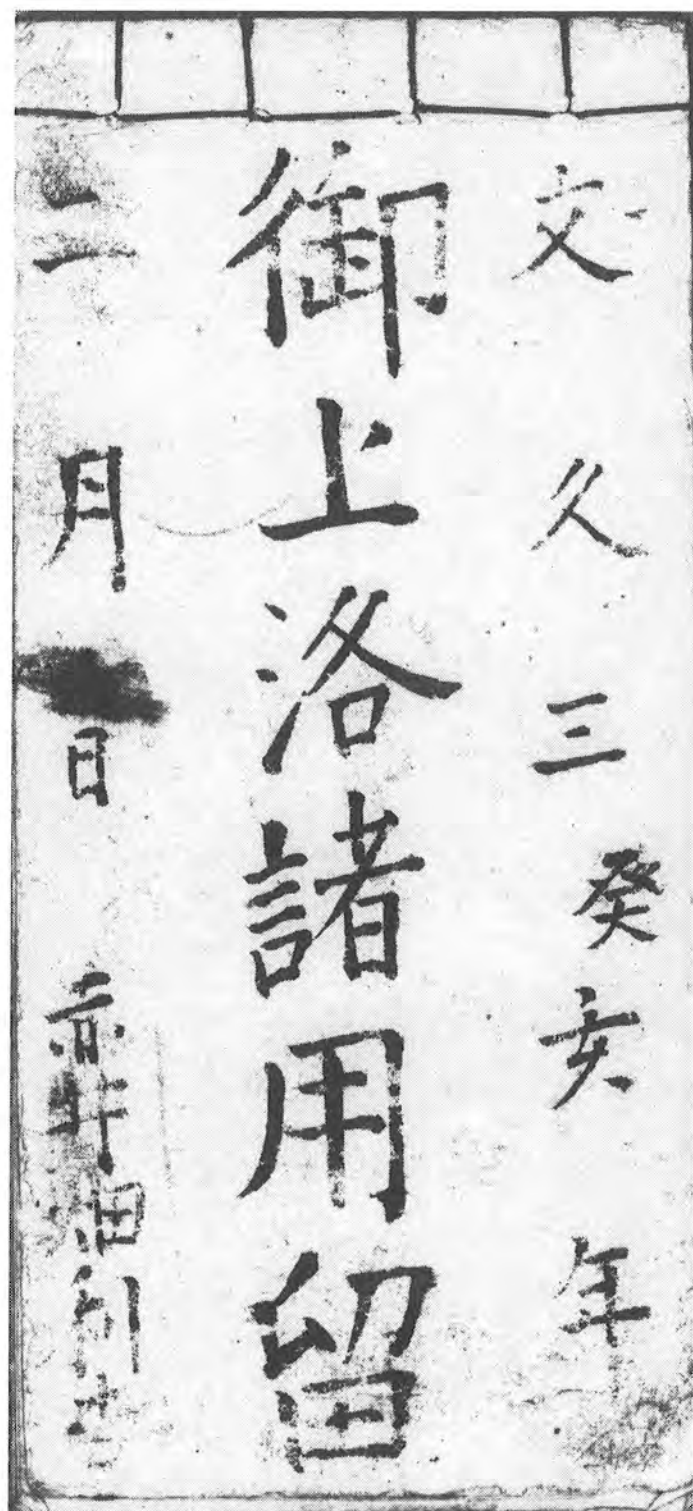 文久三癸亥年
御上洛諸用留
二月日